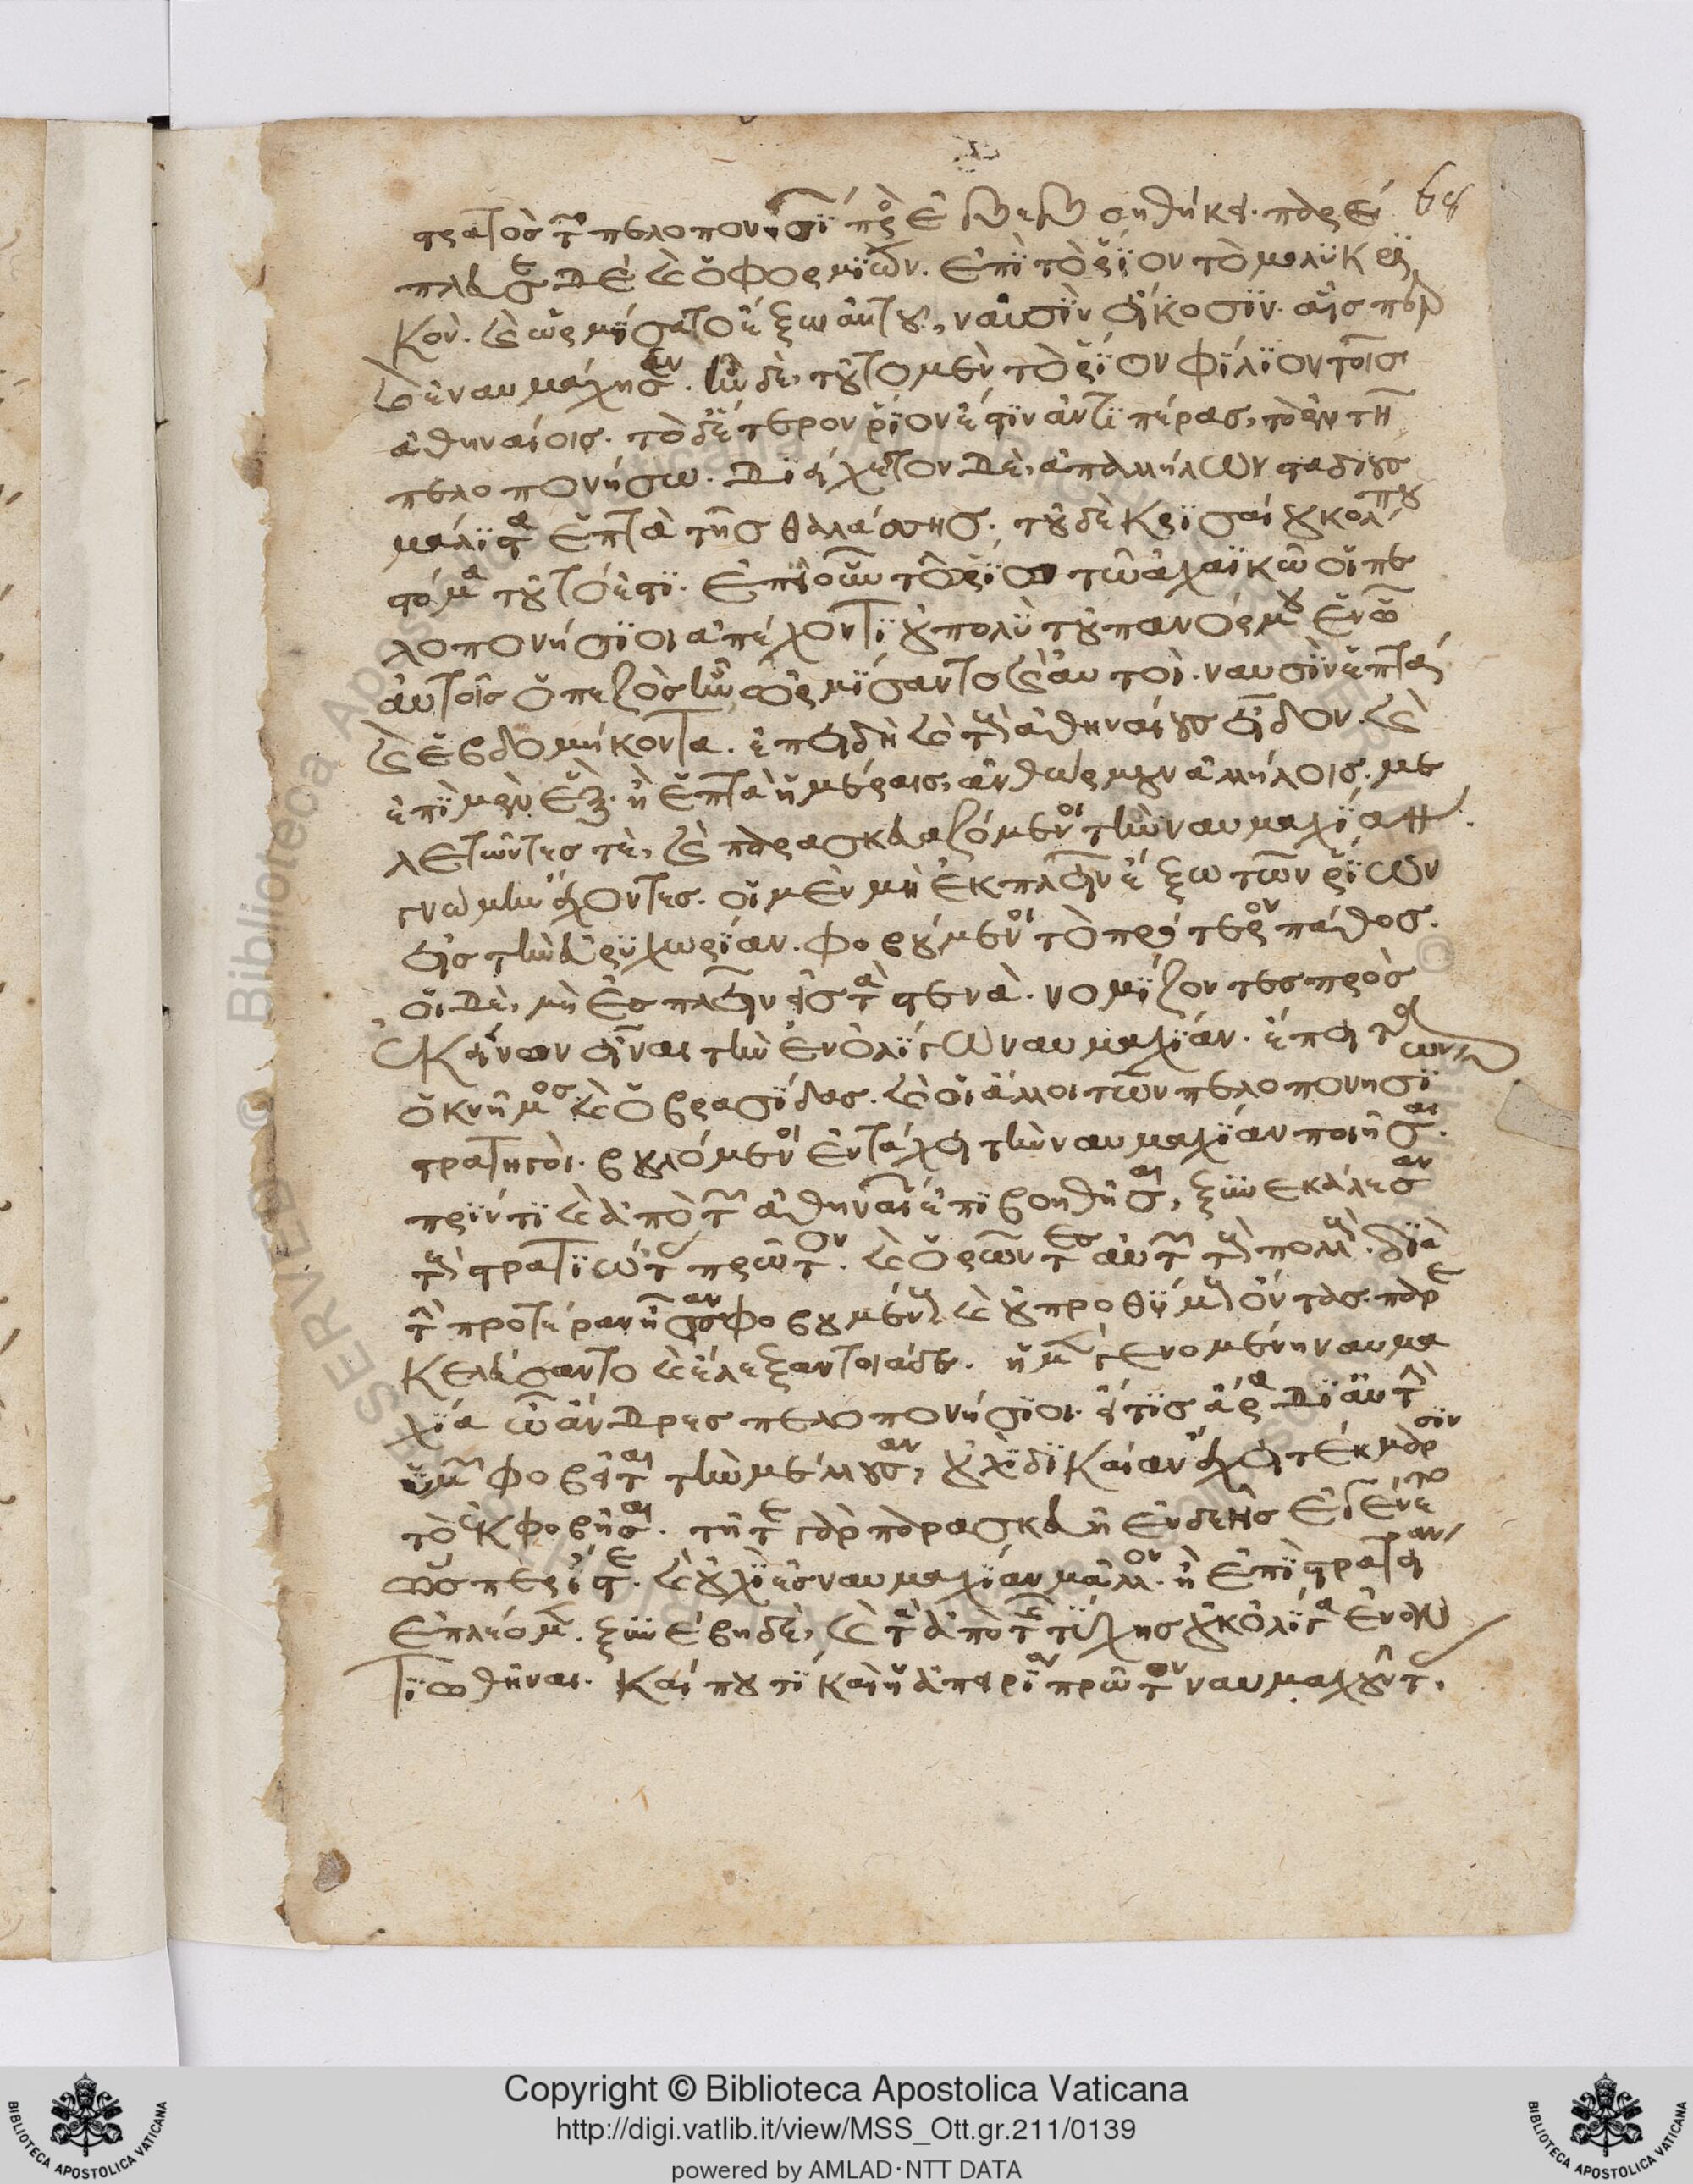 στρατὸς τῶν πελοποννησίων προσεβεβοηθήκει. παρέ 68
πλευσε δὲ καὶ ὁ φορμίων. ἐπὶ τὸ ῥίον τὸ μολυκρι
κὸν. καὶ ὡρμίσατο ἔξω αὐτοῦ, ναυσὶν εἴκοσιν. αἷσπερ
καὶ ἐναυμάχησεν. ἦν δὲ, τοῦτο μὲν τὸ ῥίον φίλιον τοῖς
ἀθηναίοις. τὸ δ' ἕτερον ῥίον ἐστὶν ἀντιπέρας, τὸ ἐν τῆ
πελοποννήσω. διείχετον δὲ, ἀπ' ἀλλήλων σταδίους
μάλιστα ἑπτὰ τῆς θαλάσσης. τοῦ δὲ κρισαίου κόλπου
στόμα τοῦτό ἐστι. ἐπὶ οὖν τῶ ῥίω τῶ ἀχαϊκῶ οἱ πε
λοποννήσιοι ἀπέχοντι οὐ πολὺ τοῦ πανόρμου ἐν ὧ
αὐτοῖς ὁ πεζὸς ἦν ὡρμίσαντο καὶ αὐτοὶ. ναυσὶν ἑπτὰ
καὶ ἑβδομήκοντα. ἐπειδὴ καὶ τοὺς ἀθηναίους εἶδον. καὶ
ἐπὶ μὲν ἓξ ἢ ἑπτὰ ἡμέρας, ἀνθώρμουν ἀλλήλοις. με
λετῶντες τὲ, καὶ παρασκευαζόμενοι τὴν ναυμαχίαν.
γνώμην ἔχοντες. οἱ μὲν μὴ ἐκπλεῖν ἔξω τῶν ῥίων
εἰς τὴν εὐρυχωρίαν. φοβούμενοι τὸ πρότερον πάθος.
οἱ δὲ, μὴ ἐσπλεῖν ἐς τὰ στενὰ. νομίζοντες πρὸς
ἐκείνων εἶναι τὴν ἐν ὀλίγω ναυμαχίαν. ἔπειτα
ὁ κνῆμος καὶ ὁ βρασίδας. καὶ οἱ ἄλλοι τῶν πελοποννησίων
στρατηγοὶ. βουλόμενοι ἐν τάχει τὴν ναυμαχίαν ποιῆσαι.
πρίν τι καὶ ἀπὸ τῶν ἀθηναίων ἐπιβοηθῆσαι, ξυνεκάλεσαν
τοὺς στρατιώτας πρῶτον. καὶ ὁρῶντες αὐτῶν τοὺς πολλοὺς. διὰ
τὴν προτέραν ἧσσαν φοβουμένους καὶ οὐ προθύμους ὄντας. παρε
κελεύσαντο καὶ ἔλεξαν τοιάδε. ἡ μὲν γενομένη ναυμα
χία ὦ ἄνδρες πελοποννήσιοι εἴ τις ἄρα δι' αὐτὴν
ὑμῶν φοβεῖται τὴν μέλλουσαν, οὐχὶ δικαίαν ἔχει τέκμαρσιν
τὸ ἐκφοβῆσαι. τῆ τε γὰρ παρασκευῆ ἐνδεὴς ἐγένετο
ὥσπερ ἴστε. καὶ οὐχὶ ἐς ναυμαχίαν μᾶλλον ἢ ἐπὶ στρατείαν
ἐπλέομεν. ξυνέβη δὲ, καὶ τὰ ἀπὸ τῆς τύχης οὐκ ὀλίγα ἐναν
τιωθῆναι. καί πού τι καὶ ἡ ἀπειρία πρῶτον ναυμαχοῦντας.
Copyright © Biblioteca Apostolica Vaticana
http://digi.vatlib.it/view/MSS_Ott.gr.211/0139
powered by AMLAD·NTT DATA
BIBLIOTECA APOSTOLICA VATICANA
BIBLIOTECA APOSTOLICA VATICANA